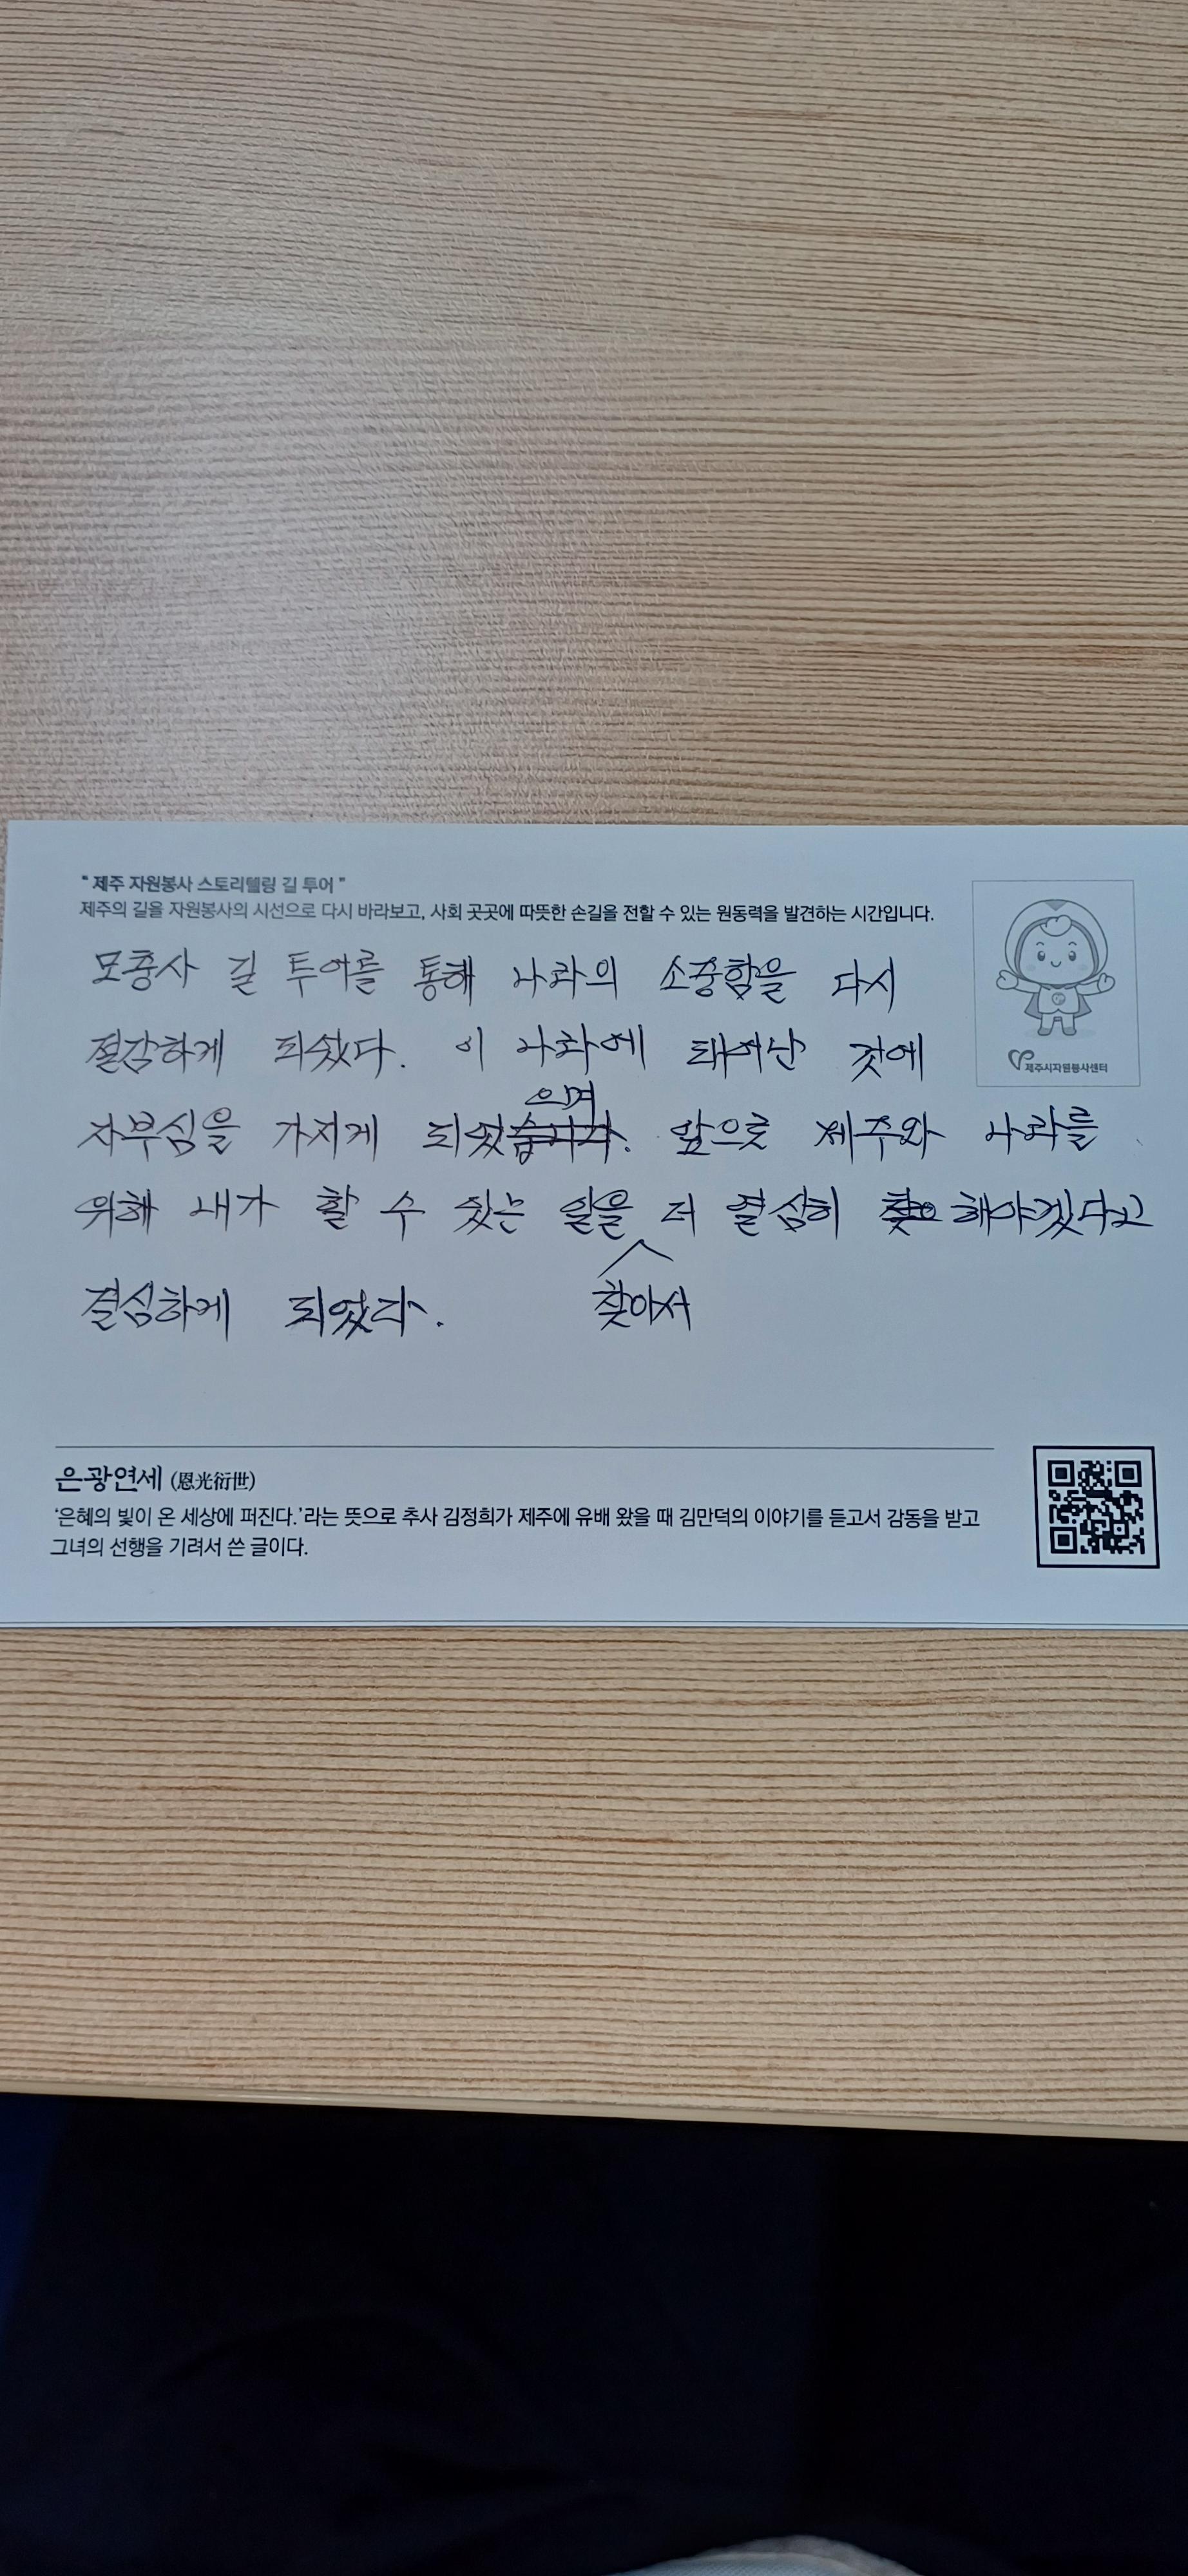 " 제주 자원봉사 스토리텔링 길 투어 "
제주의 길을 자원봉사의 시선으로 다시 바라보고, 사회 곳곳에 따뜻한 손길을 전할 수 있는 원동력을 발견하는 시간입니다.
모충사 길 투어를 통해 나라의 소중함을 다시
절감하게 되었다. 이 나라에 태어난 것에
으며
자부심을 가지게 되었습니다. 앞으로 제주와 나라를
위해 내가 할 수 있는 일을 더 열심히 해야겠다고
찾아서
결심하게 되었다.
제주시자원봉사센터
은광연세 (恩光衍世)
'은혜의 빛이 온 세상에 퍼진다.'라는 뜻으로 추사 김정희가 제주에 유배 왔을 때 김만덕의 이야기를 듣고서 감동을 받고
그녀의 선행을 기려서 쓴 글이다.